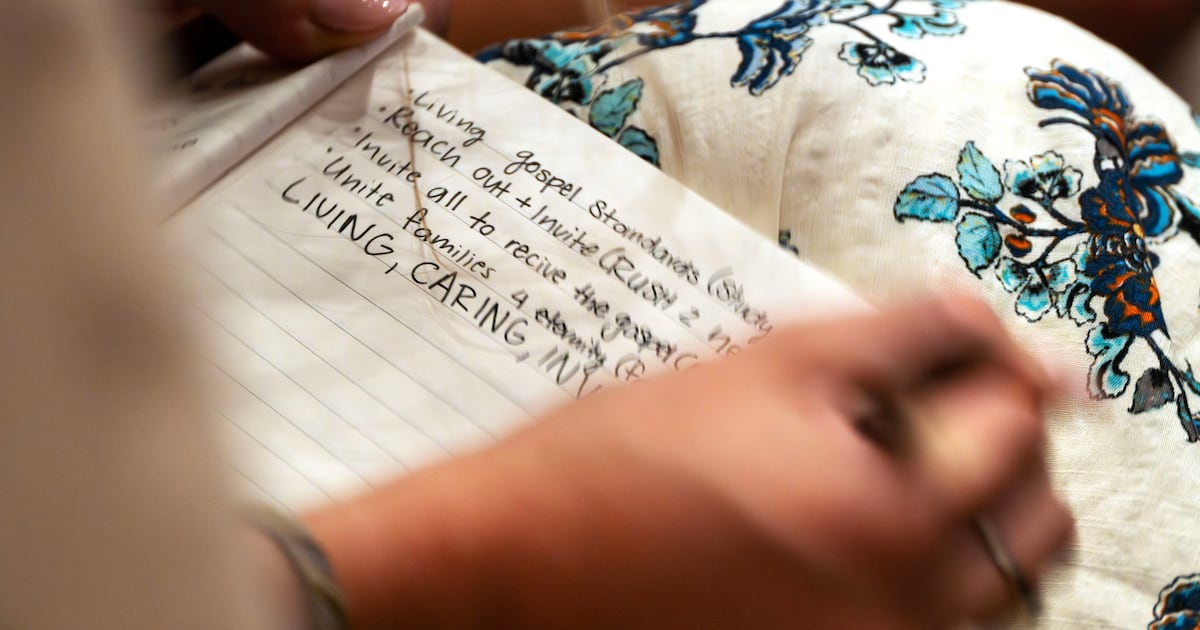 • Living gospel standards (Study
• Reach out + Invite (RUSH 2
• Invite all to recive the gospel (
• Unite families 4 eternity (
LIVING, CARING, INV